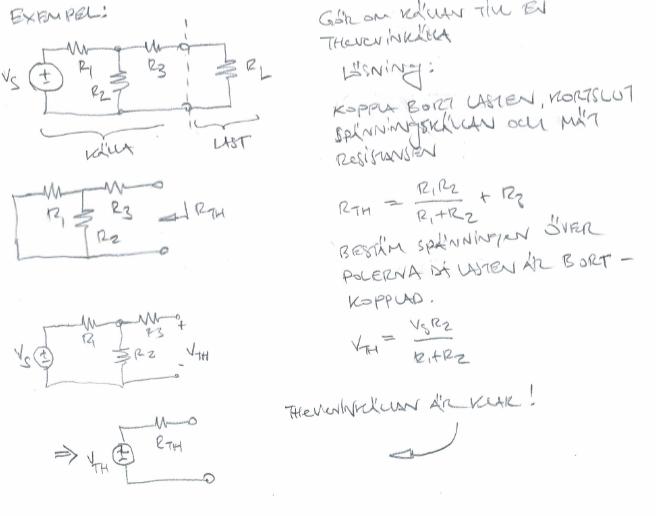 EXEMPEL:
VS
R1
R2
R3
RL
KÄLLA
LAST
R1
R3
R2
RTH
VS
R1
R3
R2
+
VTH
-
⇒ VTH
RTH
GÖR OM KÄLLAN TILL EN
THEVENINKÄLLA
LÖSNING:
KOPPLA BORT LASTEN, KORTSLUT
SPÄNNINGSKÄLLAN OCH MÄT
RESISTANSEN
RTH = R1R2 / R1+R2 + R3
BESTÄM SPÄNNINGEN ÖVER
POLERNA DÅ LASTEN ÄR BORT-
KOPPLAD.
VTH = VSR2 / R1+R2
THEVENINKÄLLAN ÄR KLAR!